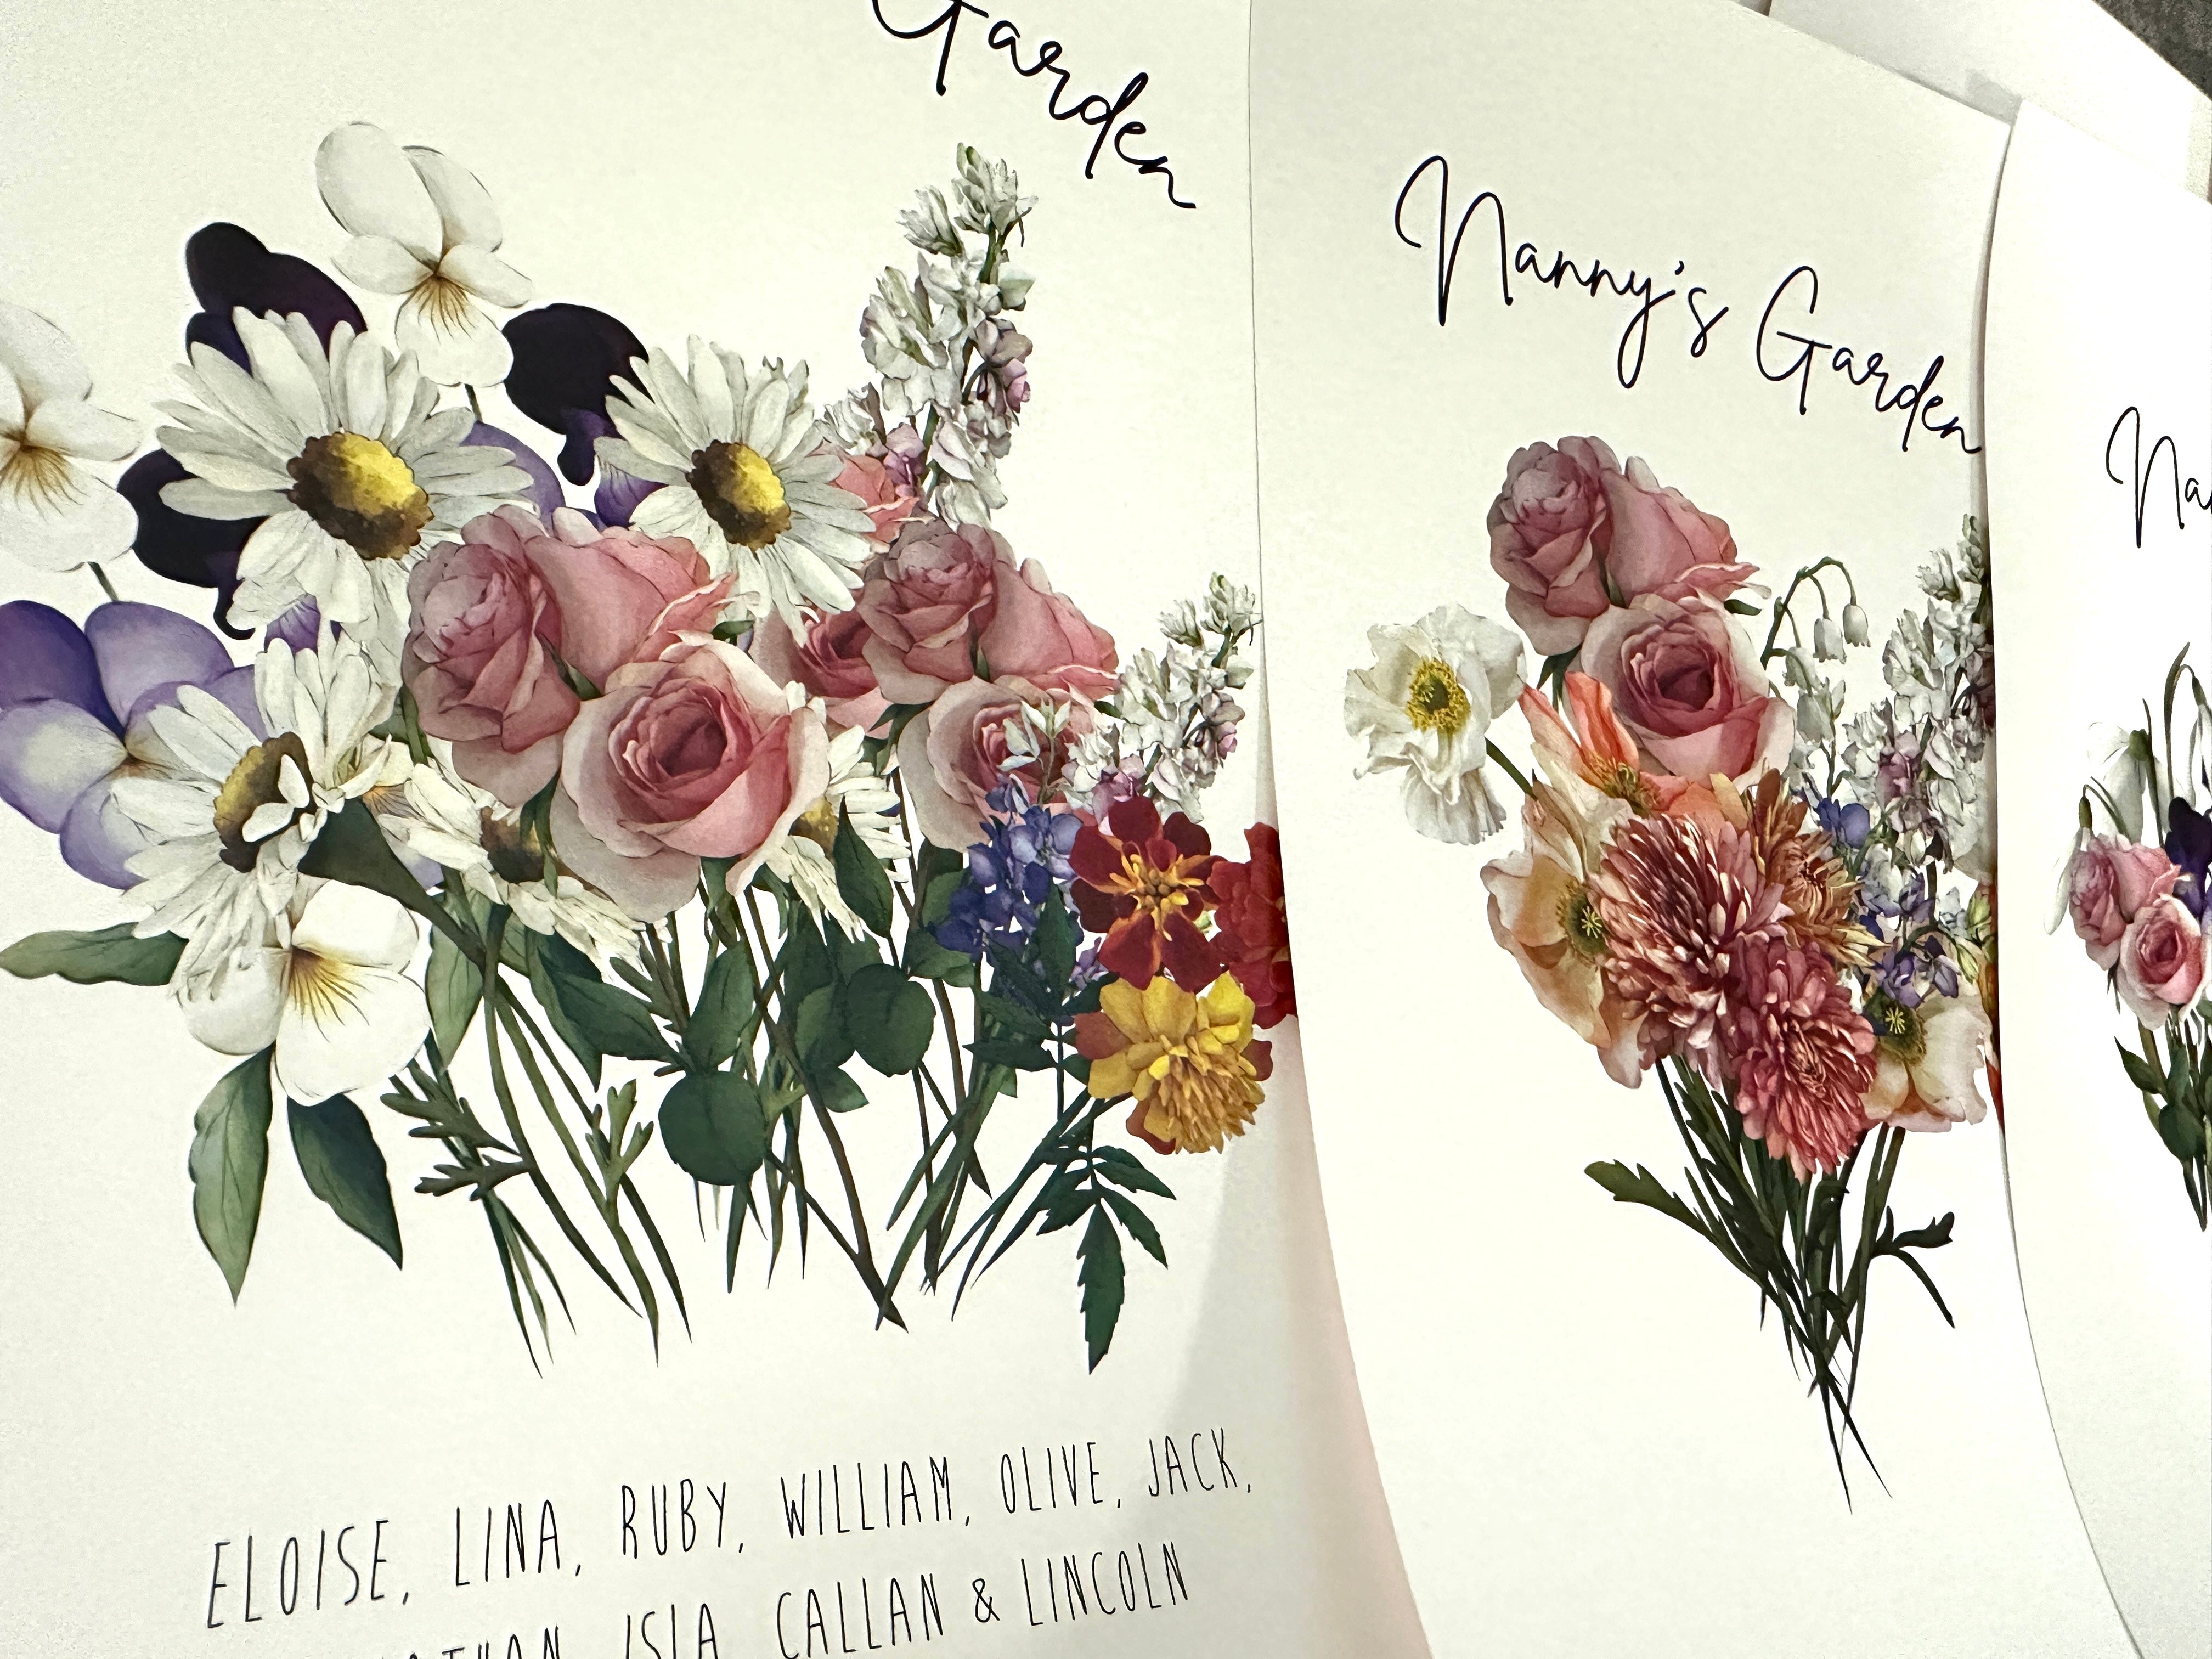 Garden
ELOISE, LINA, RUBY, WILLIAM, OLIVE, JACK,
ISLA CALLAN & LINCOLN
Nanny's Garden